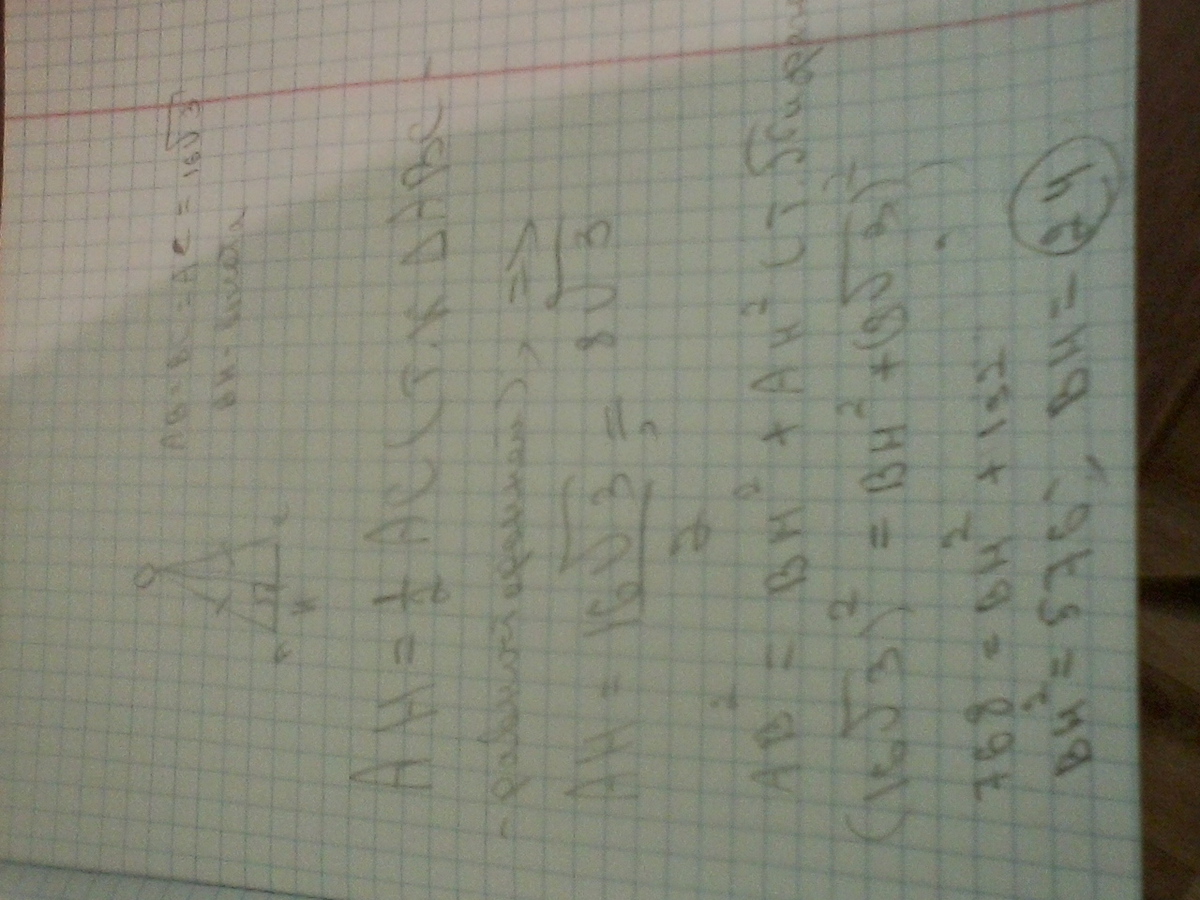 AB=BC=AC=16√3
BH-высота
H
AH = 1/2 AC (т.к ΔABC -
- равносторонний), =>
AH = 16√3/2 = 8√3
AB² = BH² + AH² (т.
(16√3)² = BH² + (8√3)²
768 = BH² + 192
BH² = 576, BH = 24